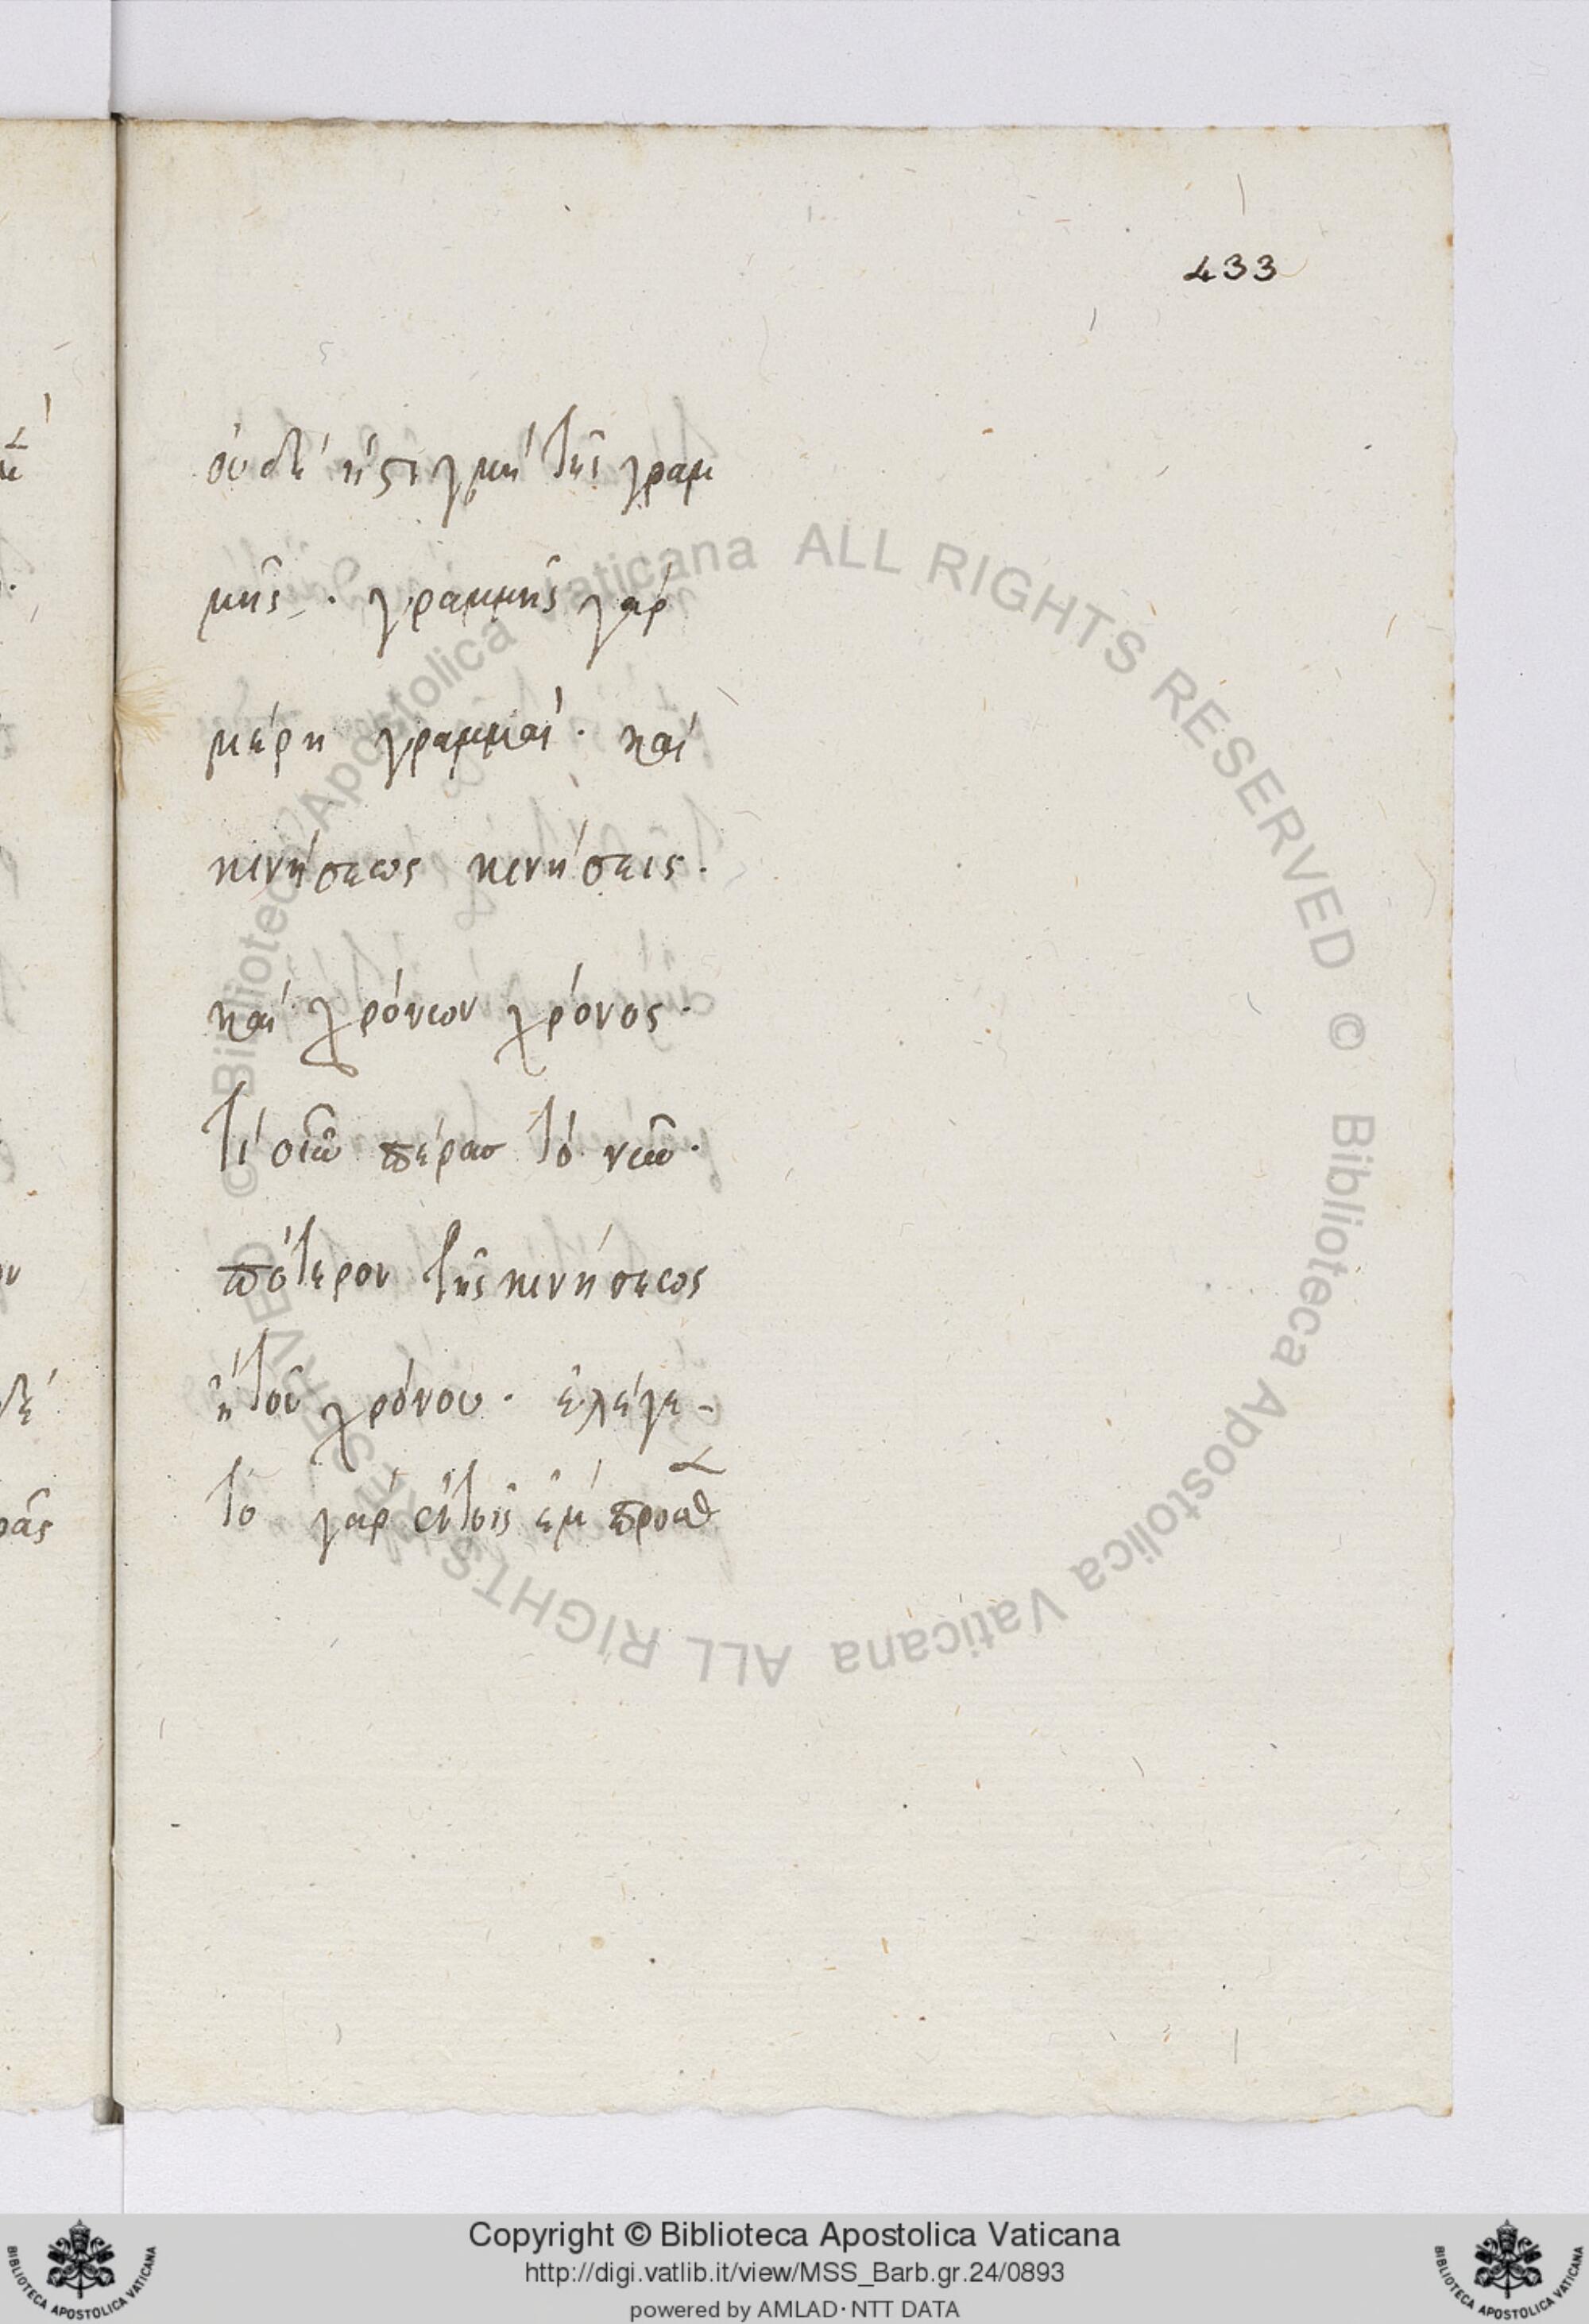 433
οὐδὲ ἡ στιγμὴ τῆς γραμ
μῆς · γραμμῆς γάρ
μέρη γραμμαί · καὶ
κινήσεως κινήσεις ·
καὶ χρόνων χρόνος ·
τί οὖν πέρασ τὸ νῦν ·
πότερον τῆς κινήσεως
ἢ τοῦ χρόνου · ἐλέγε-
το γὰρ ἐν τοῖς ἔμπροσθ
© Biblioteca Apostolica Vaticana ALL RIGHTS RESERVED © Biblioteca Apostolica Vaticana ALL RIGHTS RESERVED
Copyright © Biblioteca Apostolica Vaticana
http://digi.vatlib.it/view/MSS_Barb.gr.24/0893
powered by AMLAD·NTT DATA
BIBLIOTECA APOSTOLICA VATICANA
BIBLIOTECA APOSTOLICA VATICANA